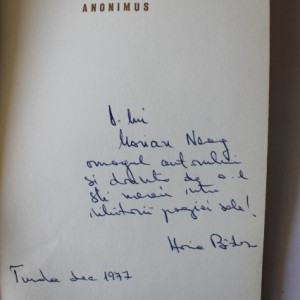 ANONIMUS
D. lui
Marian Neag
omagiul autorului
și dorința de a-l
ști mereu între
iubitorii poeziei sale!
Horia Bădescu
Turda dec 1977